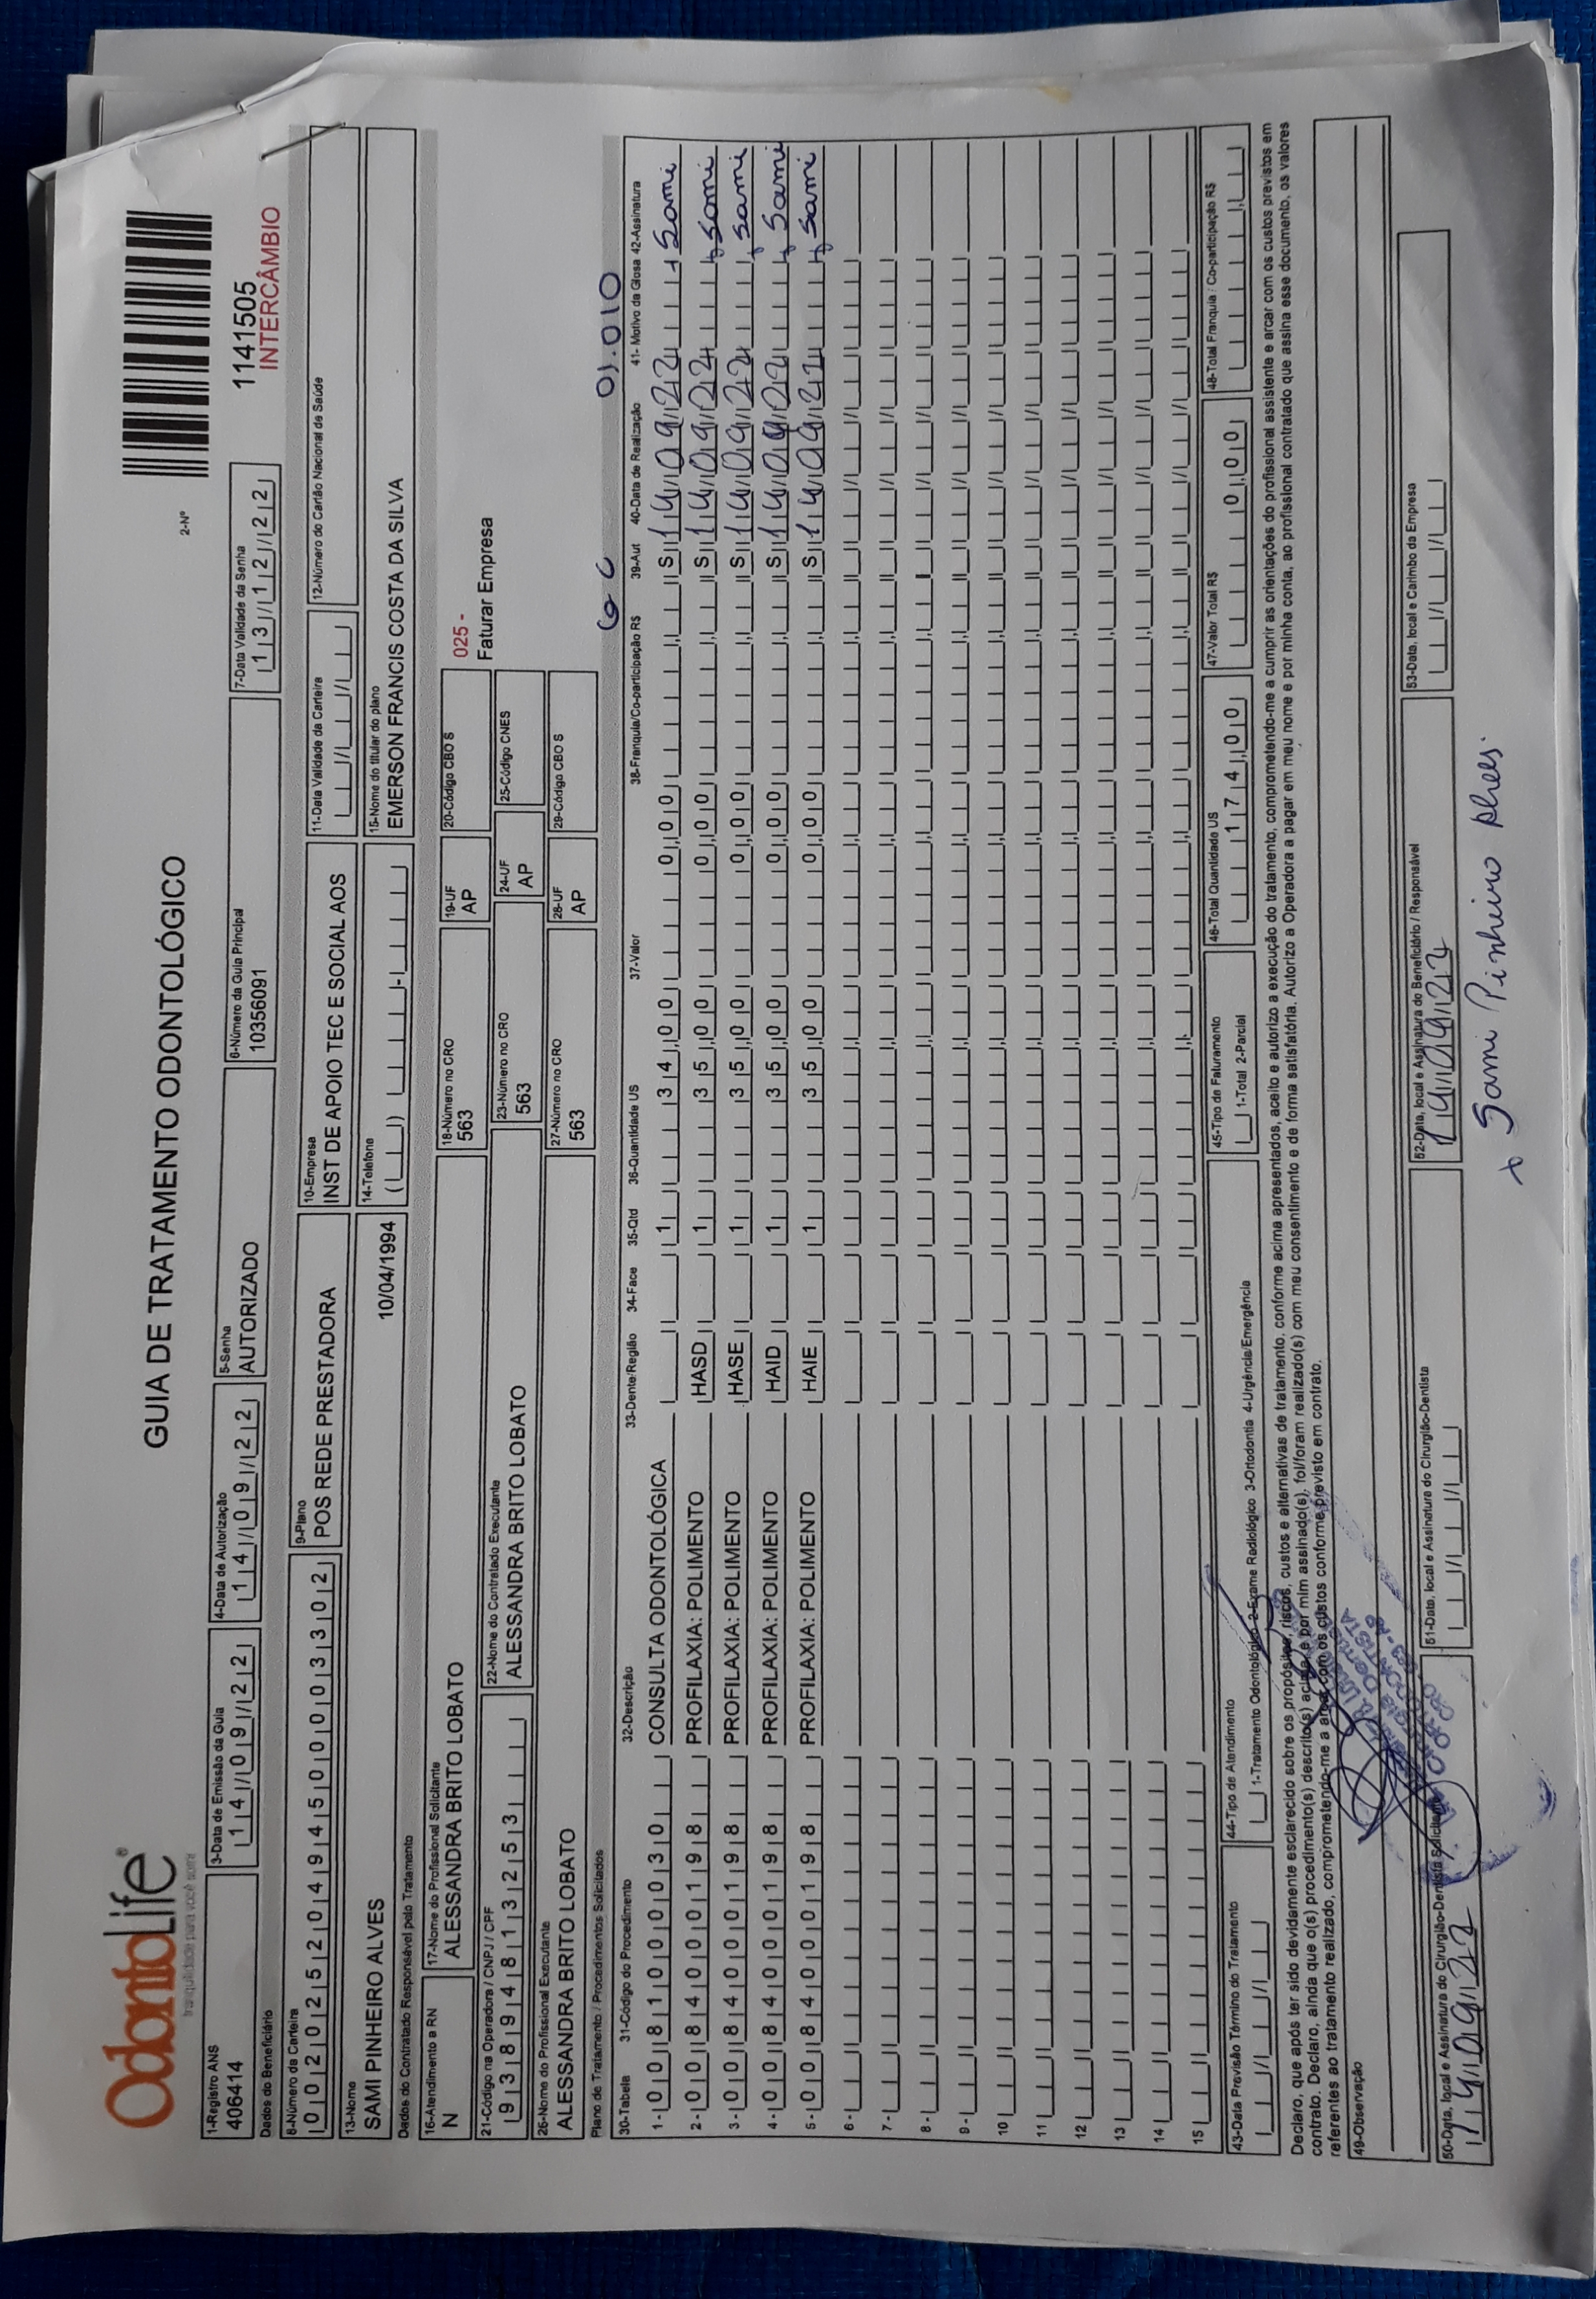 OdontoLife®
tranquilidade para você sorrir
GUIA DE TRATAMENTO ODONTOLÓGICO
2-Nº
1141505
INTERCÂMBIO
1-Registro ANS 3-Data de Emissão da Guia 4-Data de Autorização 5-Senha 6-Número da Guia Principal 7-Data Validade da Senha
406414 14/09/22 14/09/22 AUTORIZADO 10356091 13/12/22
Dados do Beneficiário
8-Número da Carteira 9-Plano 10-Empresa 11-Data Validade da Carteira 12-Número do Cartão Nacional de Saúde
0020252049450003302 POS REDE PRESTADORA INST DE APOIO TEC E SOCIAL AOS
13-Nome 14-Telefone 15-Nome do titular do plano
SAMI PINHEIRO ALVES 10/04/1994 EMERSON FRANCIS COSTA DA SILVA
Dados do Contratado Responsável pelo Tratamento
16-Atendimento a RN 17-Nome do Profissional Solicitante 18-Número no CRO 19-UF 20-Código CBO S
N ALESSANDRA BRITO LOBATO 563 AP
025 -
Faturar Empresa
21-Código na Operadora / CNPJ / CPF 22-Nome do Contratado Executante 23-Número no CRO 24-UF 25-Código CNES
93894813253 ALESSANDRA BRITO LOBATO 563 AP
26-Nome do Profissional Executante 27-Número no CRO 28-UF 29-Código CBO S
ALESSANDRA BRITO LOBATO 563 AP
Plano de Tratamento / Procedimentos Solicitados
30-Tabela 31-Código do Procedimento 32-Descrição 33-Dente/Região 34-Face 35-Qtd 36-Quantidade US 37-Valor 38-Franquia/Co-participação R$ 39-Aut 40-Data de Realização 41- Motivo da Glosa 42-Assinatura
1 - 00 81000030 CONSULTA ODONTOLÓGICA 1 34,00 0,00 S 14/09/22 Sami
2 - 00 84000198 PROFILAXIA: POLIMENTO HASD 1 35,00 0,00 S 14/09/22 Sami
3 - 00 84000198 PROFILAXIA: POLIMENTO HASE 1 35,00 0,00 S 14/09/22 Sami
4 - 00 84000198 PROFILAXIA: POLIMENTO HAID 1 35,00 0,00 S 14/09/22 Sami
5 - 00 84000198 PROFILAXIA: POLIMENTO HAIE 1 35,00 0,00 S 14/09/22 Sami
6 -
7 -
8 -
9 -
10
11
12
13
14
15
43-Data Previsão Término do Tratamento 44-Tipo de Atendimento 45-Tipo de Faturamento 46-Total Quantidade US 47-Valor Total R$ 48-Total Franquia / Co-participação R$
1-Tratamento Odontológico 2-Exame Radiológico 3-Ortodontia 4-Urgência/Emergência 1-Total 2-Parcial 174,00 0,00
Declaro, que após ter sido devidamente esclarecido sobre os propósitos, riscos, custos e alternativas de tratamento, conforme acima apresentados, aceito e autorizo a execução do tratamento, comprometendo-me a cumprir as orientações do profissional assistente e arcar com os custos previstos em
contrato. Declaro, ainda que o(s) procedimento(s) descrito(s) acima e por mim assinado(s), foi/foram realizado(s) com meu consentimento e de forma satisfatória. Autorizo a Operadora a pagar em meu nome e por minha conta, ao profissional contratado que assina esse documento, os valores
referentes ao tratamento realizado, comprometendo-me a arcar com os custos conforme previsto em contrato.
49-Observação
50-Data, local e Assinatura do Cirurgião-Dentista Solicitante 51-Data, local e Assinatura do Cirurgião-Dentista 52-Data, local e Assinatura do Beneficiário / Responsável 53-Data, local e Carimbo da Empresa
14/09/22 14/09/22
Sami Pinheiro Alves.